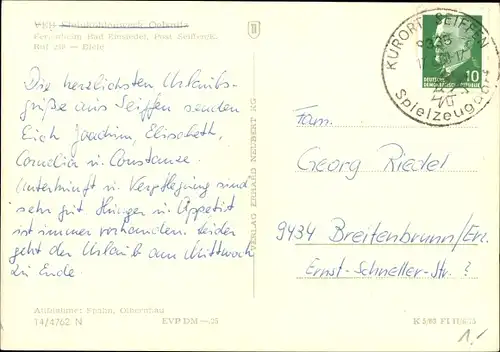 VEB Steinkohlenwerk Oelsnitz
Ferienheim Bad Einsiedel, Post Seiffen/Erzg.
Ruf 259 - Eiele
Die herzlichsten Urlaubs-
grüße aus Seiffen senden
Euch Joachim, Elisabeth,
Cornelia u. Constanze.
Unterkunft u. Verpflegung sind
sehr gut. Hunger u. Appetit
ist immer vorhanden. Leider
geht der Urlaub am Mittwoch
zu Ende.
Aufnahme: Spihn, Olbernhau
14/4762 N
EVP DM -.25
VERLAG ERHARD NEUBERT KG
KURORT SEIFFEN
9335
Spielzeugdorf
10
DEUTSCHE
DEMOKRATISCHE REPUBLIK
Fam.
Georg Riedel
9434 Breitenbrunn/Erz.
Ernst-Schneller-Str. ?
K 5/63
1,-